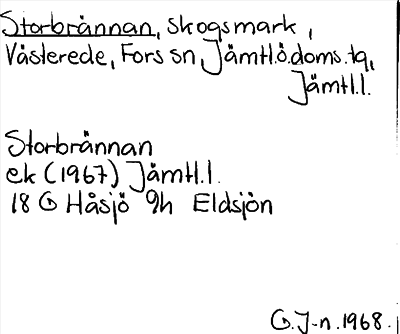 Storbrännan, skogsmark,
Västerede, Fors sn Jämtl.ö.doms.tg,
Jämtl.l.
Storbrännan
ek (1967) Jämtl.l.
18 G Håsjö 9h Eldsjön
G.J-n.1968.